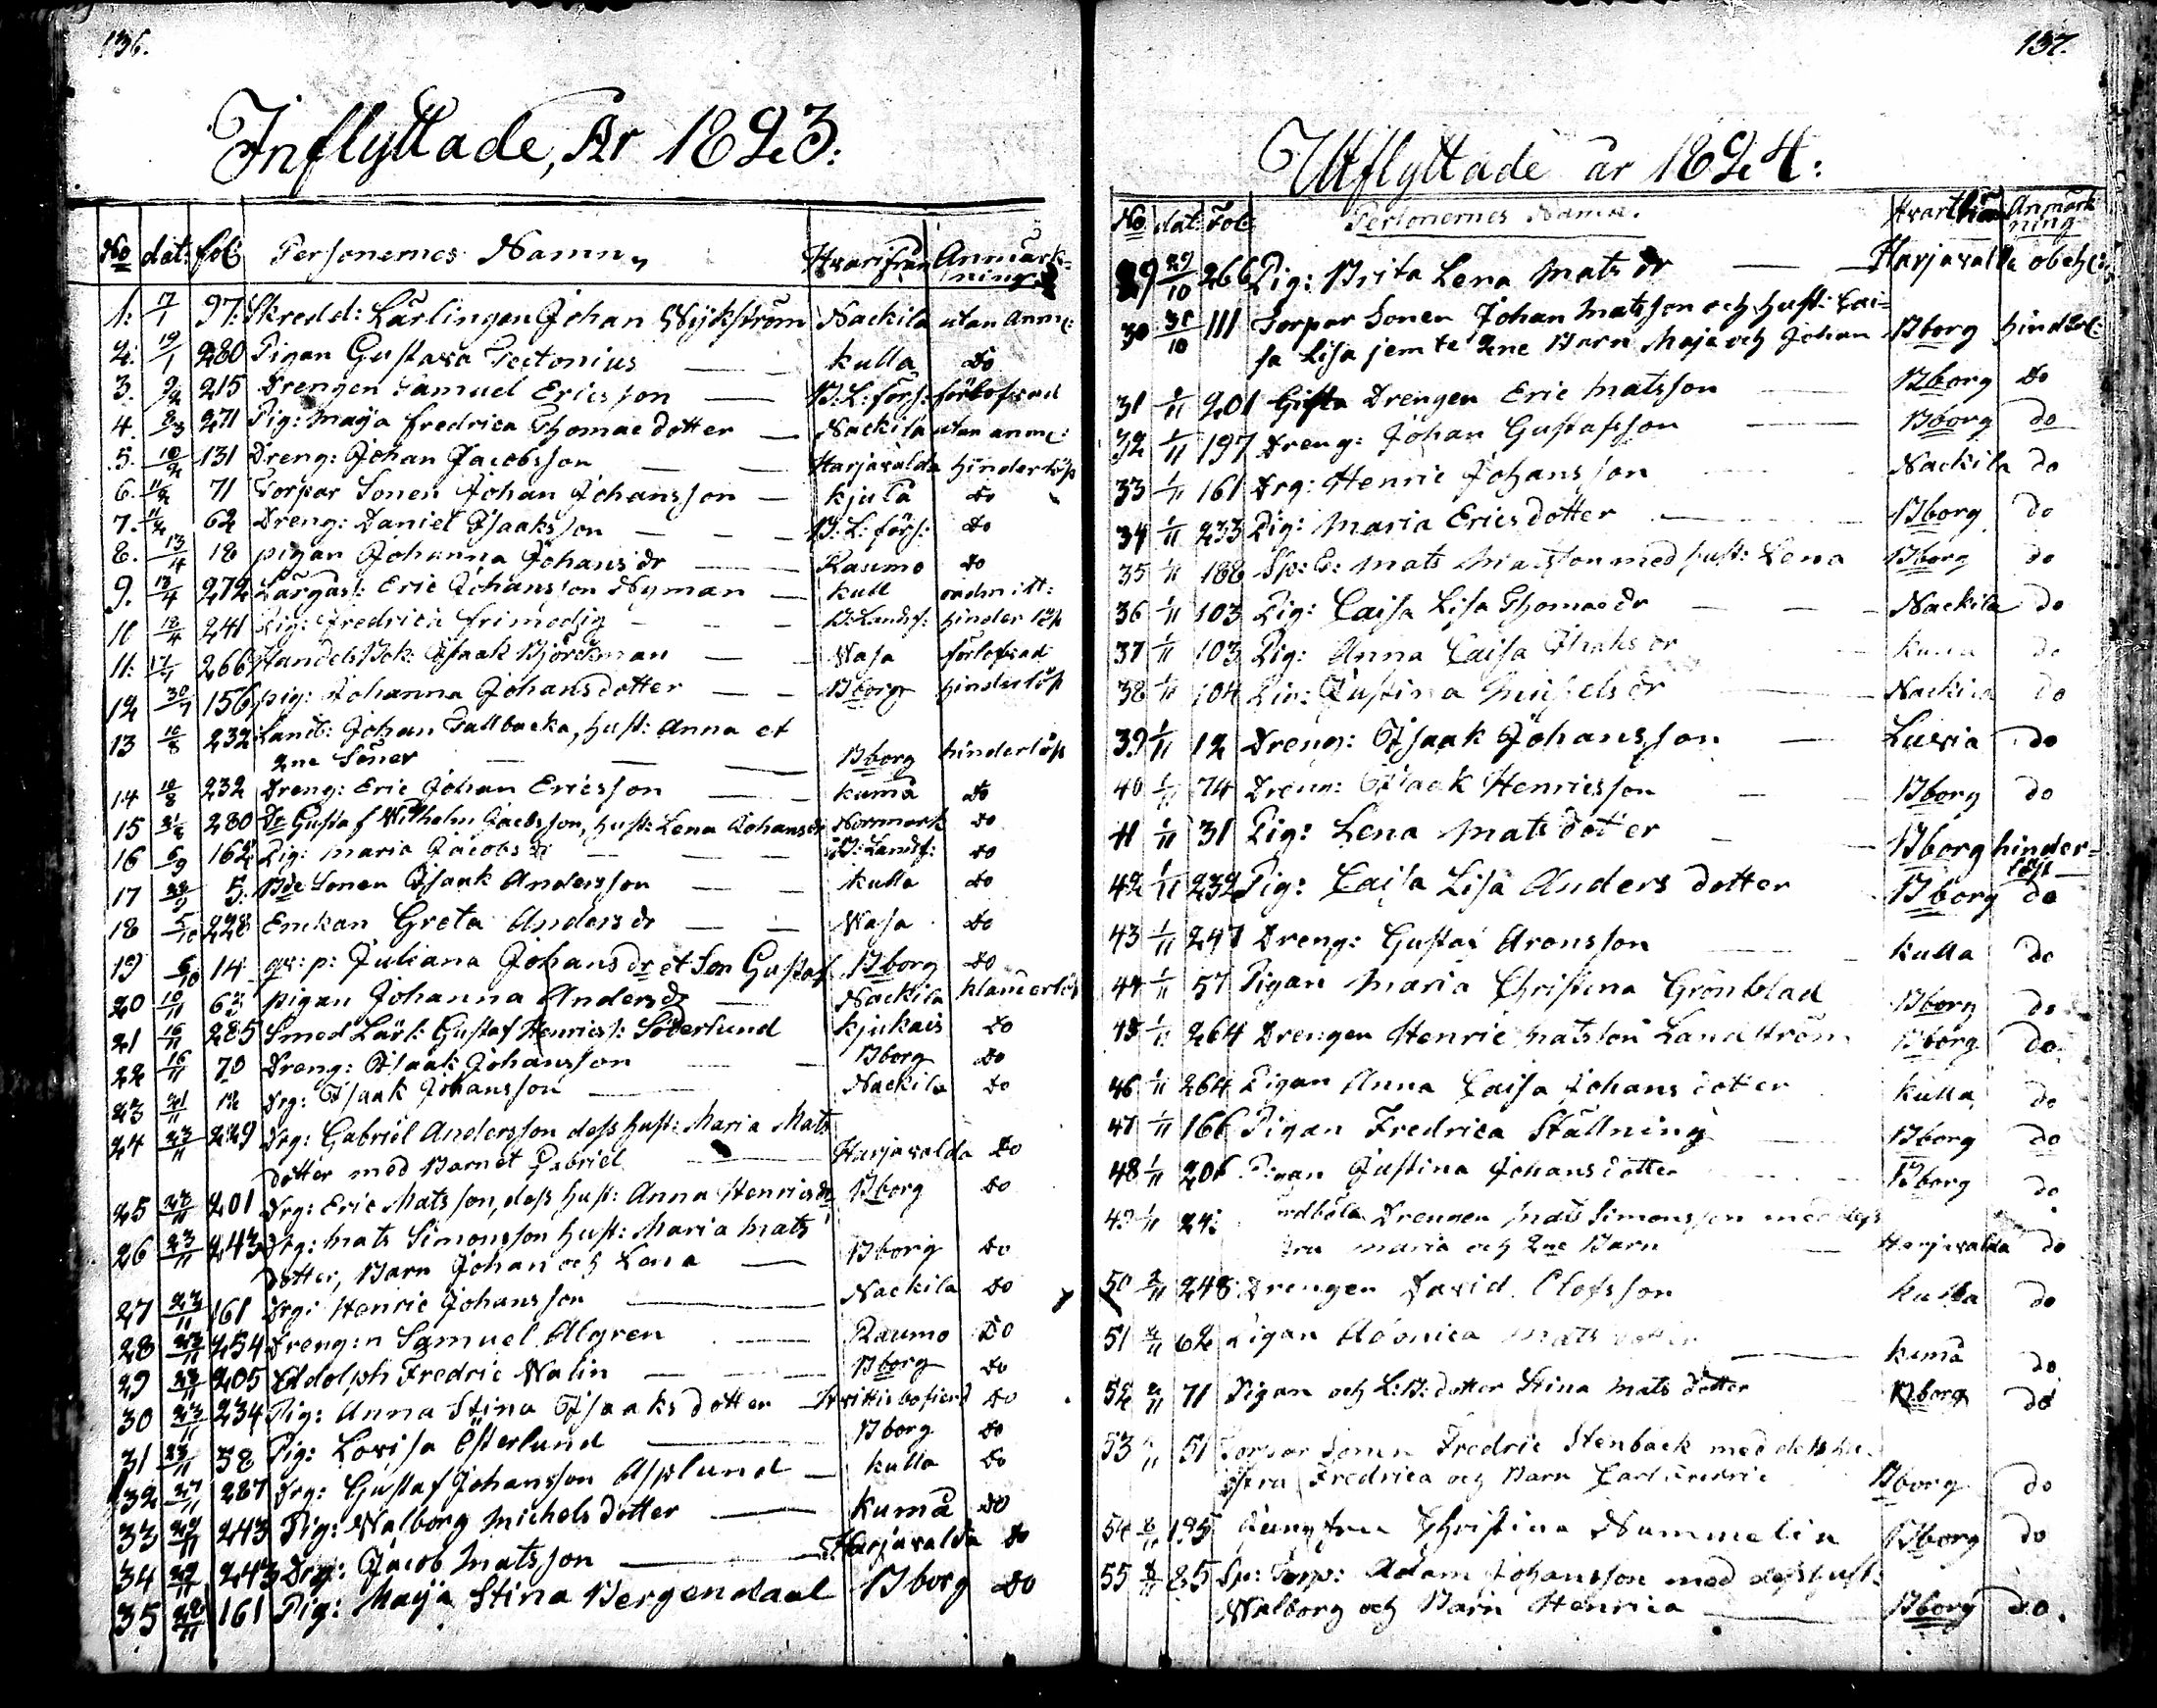 136.
Inflyttade, År 1823:
No dat: fol: Personernes Namn, Hvarifrån Anmärk=
ning
1: 17/1 97: Skredd: Lärlingen Johan Wijkström Nackila utan anm:
2: 19/1 280 Pigan Gustava Tectonius kulla do
3. 2/2 215 Drengen Samuel Ericsson B: L: förs: förlofvad
4. 8/3 271 Pig: Maja Fredrica Thomae dotter Nackila utan anm:
5. 10/2 131 Dreng: Johan Jacobsson Harjavalda hinderlös
6. 11/2 71 Torpar Sonen Johan Johansson kjula do
7. 11/2 62 Dreng: Daniel Isaaksson B: L: förs: do
8. 13/4 18 pigan Johanna Johans dr Raumo do
9. 13/4 272 Lärgås: Eric Johansson Nyman kull admitt:
10 18/4 241 Pig: Fredrica frimodig B: Lands: hinderlös
11: 266 Handels Bok: Isaak Björckman Wasa förlofvad
12 30/7 156 pig: Johanna Johansdotter Bborg hinderlös
13 10/8 232 Landb: Johan Tallbacka, hust: Anna et
2ne Söner Bborg hinderlös
14 18/8 232 Dreng: Eric Johan Ericsson kumå do
15 31/8 280 Dr Gustaf Wilhelm Jacobsson, hust: Lena Johans dr Norrmark do
16 6/9 162 Pig: Maria Jacobs dr B: Lands: do
17 28/9 5: Bde Sonen Isaak Andersson kulla do
18 5/10 228 Enckan Greta Anders dr Wasa do
19 6/10 14 qv: p: Juliana Johans dr et Son Gustaf Bborg do
20 10/11 62 pigan Johanna Anders dr Nackila klanderlös
21 16/11 285 Smed Lärl: Gustaf Henricss: Söderlund kjukais do
22 16/11 70 Dreng: Isaak Johansson Bborg do
23 21/11 12 Drg: Isaak Johansson Nackila do
24 23/11 229 Drg: Gabriel Andersson dess hust: Maria Mats
dotter med Barnet Gabriel Harjavalda do
25 23/11 201 Drg: Eric Matsson, dess hust: Anna Henrics dr Bborg do
26 23/11 243 Drg: Mats Simonsson hust: Maria Mats
dotter, Barn Johan och Lena Bborg do
27 23/11 161 Drg: Henric Johansson Nackila do
28 23/11 254 Dreng:n Samuel Algren Raumo do
29 23/11 205 Adolph Fredric Malin Bborg do
30 23/11 234 Pig: Anna Stina Isaaks dotter Hvittisbofjerd do
31 23/11 58 Pig: Lovisa Österlund Bborg do
32 27/11 287 Drg: Gustaf Johansson Asplund kulla do
33 29/11 243 Pig: Walborg Michels dotter kumå do
34 29/11 243 Drg: Jacob Matsson Harjavalda do
35 28/11 161 Pig: Maja Stina Bergendaal Bborg do
137.
Utflyttade år 1824:
No dat: Fol: Personernes Namn. Hvarthän Anmärk
ning
29 29/10 266 Pig: Brita Lena Mats dr Harjavalda obeh:
30 30/10 111 Torpar Sonen Johan Matsson och hust: Cai=
sa Lisa jemte 2ne Barn Maja och Johan Bborg hindsl:
31 201 Gifta Drengen Eric Matsson Bborg do
32 1/11 197 Dreng: Johan Gustafsson Bborg do
33 1/11 161 Drg: Henric Johansson Nackila do
34 1/11 233 Pig: Maria Erics dotter Bborg do
35 1/11 188 Sp: E: Mats Matsson med hust: Lena Bborg do
36 1/11 103 Pig: Caisa Lisa Thomae dr Nackila do
37 1/11 103 Pig: Anna Caisa Isaks dr do
38 1/11 104 Pig: Justina Michels dr Nackila do
39 1/11 12 Dreng: Isaak Johansson Luvia do
40 1/11 74 Dreng: Isaak Henricsson Bborg do
41 1/11 31 Pig: Lena Mats dotter Bborg hinder=
löst
42 1/11 232 Pig: Caisa Lisa Anders dotter Bborg do
43 1/11 247 Dreng: Gustaf Aronsson kulla do
44 1/11 57 Pigan Maria Christina Grönblad Bborg do
45 1/11 264 Drengen Henric Matsson Landström Bborg do
46 1/11 264 Pigan Anna Caisa Johans dotter kulla do
47 1/11 166 Pigan Fredrica Ställning Bborg do
48 1/11 206 Pigan Justina Johans dotter Bborg do
49 1/11 Drengen Mats Simonsson med dess
Maria och 2ne Barn Harjavalda do
50 2/11 248 Drengen David Olofsson kulla do
51 2/11 62 Pigan Mats dotter kumå do
52 2/11 71 Pigan och L: B: dotter Stina Mats dotter Bborg do
53 51 Torpar Sonen Fredric Stenback med dess hu-
stru Fredrica och Barn Carl Fredric Bborg do
54 195 Jungfrun Christina Nummelin Bborg do
55 85 Sp: Torp: Adam Johansson med dess hust:
Walborg och Barn Henrica Bborg do.